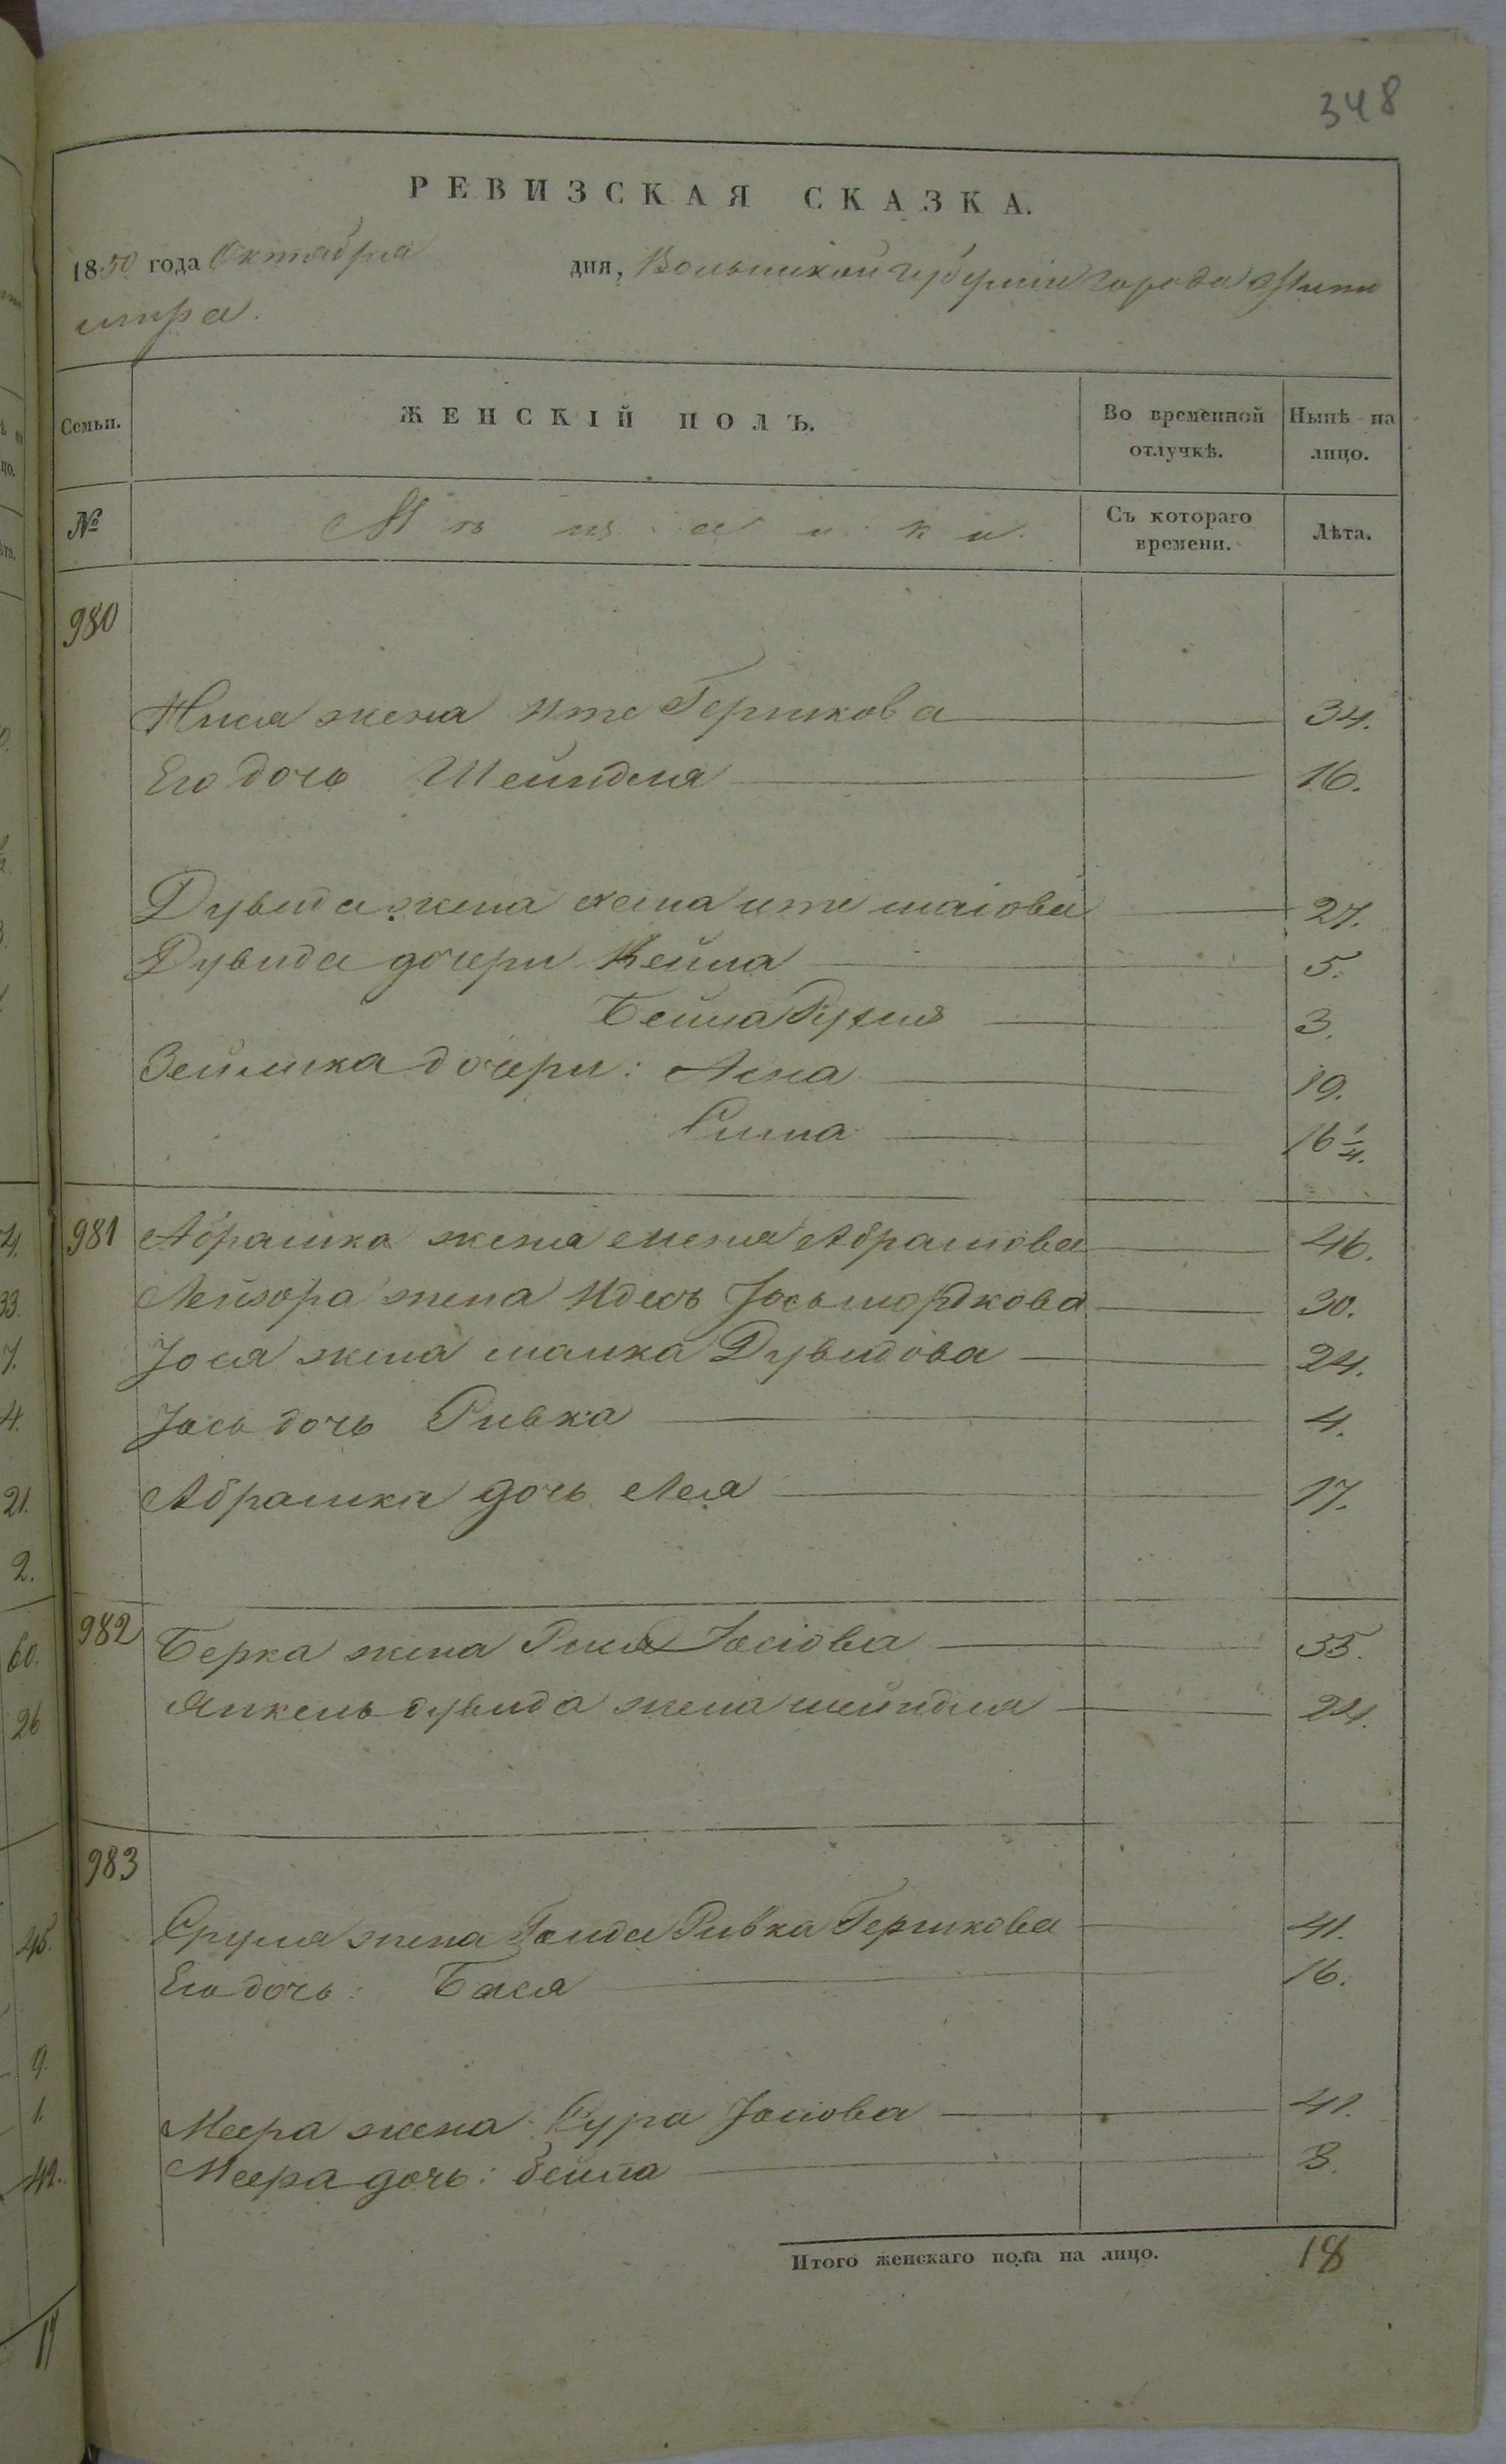 348
РЕВИЗСКАЯ СКАЗКА.
1850 года Октября дня, Волынской губерніи города Жито
мира.
Семьи. ЖЕНСКІЙ ПОЛЪ. Во временной отлучкѣ. Нынѣ на лицо.
№ Мѣщанки. Съ котораго времени. Лѣта.
980
жена Ите Гершкова 34.
Его дочь Шейндля 16.
Дувида жена ите шаіова 27.
Дувида дочери Кейла 5.
Бейла Рухля 3.
Зейлика дочери: Асна 19.
Сима 16 1/4.
981 Абрамка жена Абрамова 46.
Лейзора жена Идесъ Іосьмордкова 30.
Іося жена малка Дувидова 24.
Іося дочь Ривка 4.
Абрамка дочь Лея 17.
982 Берка жена Іосіова 55.
Янкель дувида жена шейндля 24.
983
Сруля жена Ривка Гершкова 41.
Его дочь: Бася 16.
Меера жена Сура Іосіова 41.
Меера дочь: бейла 3.
Итого женскаго пола на лицо. 18